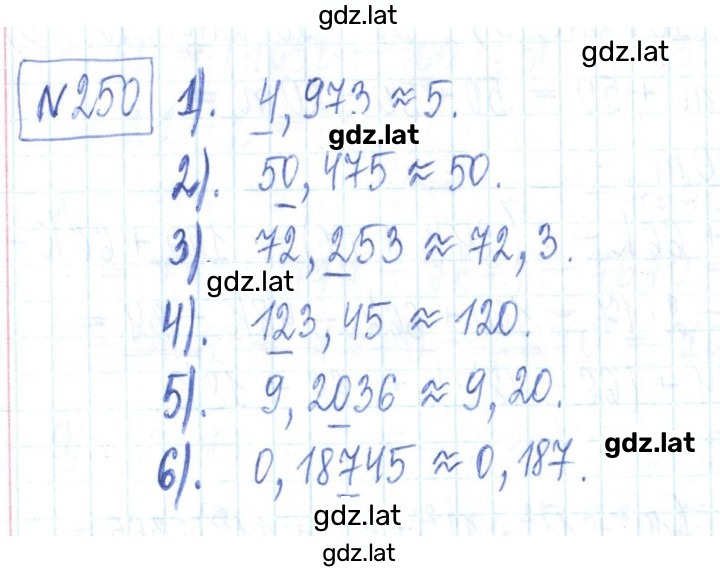 gdz.lat
gdz.lat
№250 1). 4,973 ≈ 5.
gdz.lat
2). 50,475 ≈ 50.
3). 72,253 ≈ 72,3.
gdz.lat
4). 123,45 ≈ 120.
5). 9,2036 ≈ 9,20.
gdz.lat
6). 0,18745 ≈ 0,187.
gdz.lat
gdz.lat